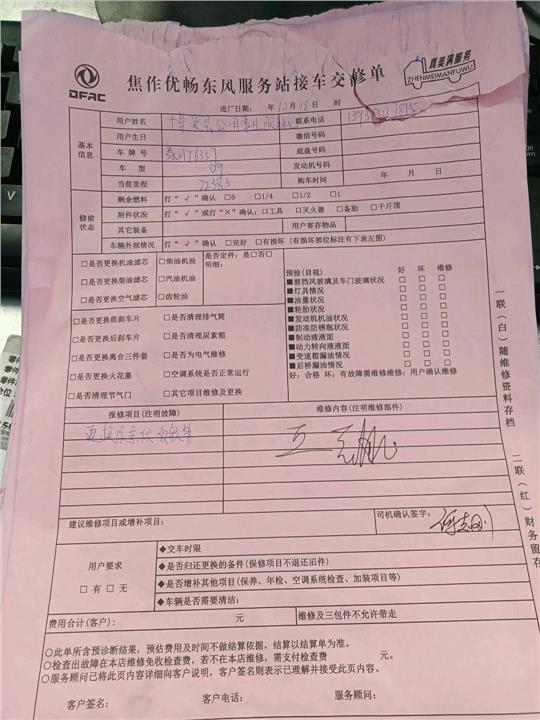 DFAC
焦作优畅东风服务站接车交修单
真美满服务
ZHENMEIMANFUWU
进厂日期： 年 10 月 18 日 时
基本信息
用户姓名
联系电话
用户生日
微信号码
车牌号
底盘号
车型
发动机号码
当前里程 22383
购车时间 年 月 日
修前状态
剩余燃料 打“√”确认 □0 □1/4 □1/2 □1
附件状况 打“√”或打“×”确认：□工具 □灭火器 □备胎 □千斤顶
其它装备
用户寄存物品
车辆外部情况 打“√”确认 □完好 □有损坏（有损坏部位标注有下表左图）
□是否更换机油滤芯 □柴油机油
□是否更换柴油滤芯 □汽油机油
□是否更换空气滤芯 □齿轮油
是否定件：是□否□
明细：
□是否更换前刹车片 □是否清理排气筒
□是否更换后刹车片 □是否清理尿素箱
□是否更换离合三件套 □是否为电气维修
□是否更换火花塞 □空调系统是否正常运行
□是否清理节气门 □其它项目维修及更换
预检（目视） 好 坏 维修
■前挡风玻璃及车门玻璃状况 □ □ □
■灯具情况 □ □ □
■油量状况 □ □ □
■轮胎状况 □ □ □
■发动机机油状况 □ □ □
■防冻防锈瓶状况 □ □ □
■制动液液面 □ □ □
■动力转向液液面 □ □ □
■变速箱漏油情况 □ □ □
■后桥漏油情况 □ □ □
好：合格 坏：有故障需维修维修：用户确认维修
报修项目（注明故障）
维修内容（注明维修部件）
建议维修项目或增补项目：
司机确认签字：
用户要求
□有 □无
◆交车时限
◆是否归还更换的备件（保修项目不退还旧件）
◆是否增补其他项目（保养、年检、空调系统检查、加装项目等）
◆车辆是否需要清洁：
费用合计（客户）： 元
维修及三包件不允许带走
○此单所含预诊断结果，预估费用及时间不做结算依据，结算以结算单为准。
○检查出故障在本店维修免收检查费，若不在本店维修，需支付检查费 元。
○服务顾问已将此页内容详细向客户说明，客户签名则表示已理解并接受此页内容。
客户签名： 客户电话： 服务顾问：
一联（白）随维修资料存档
二联（红）财务留存